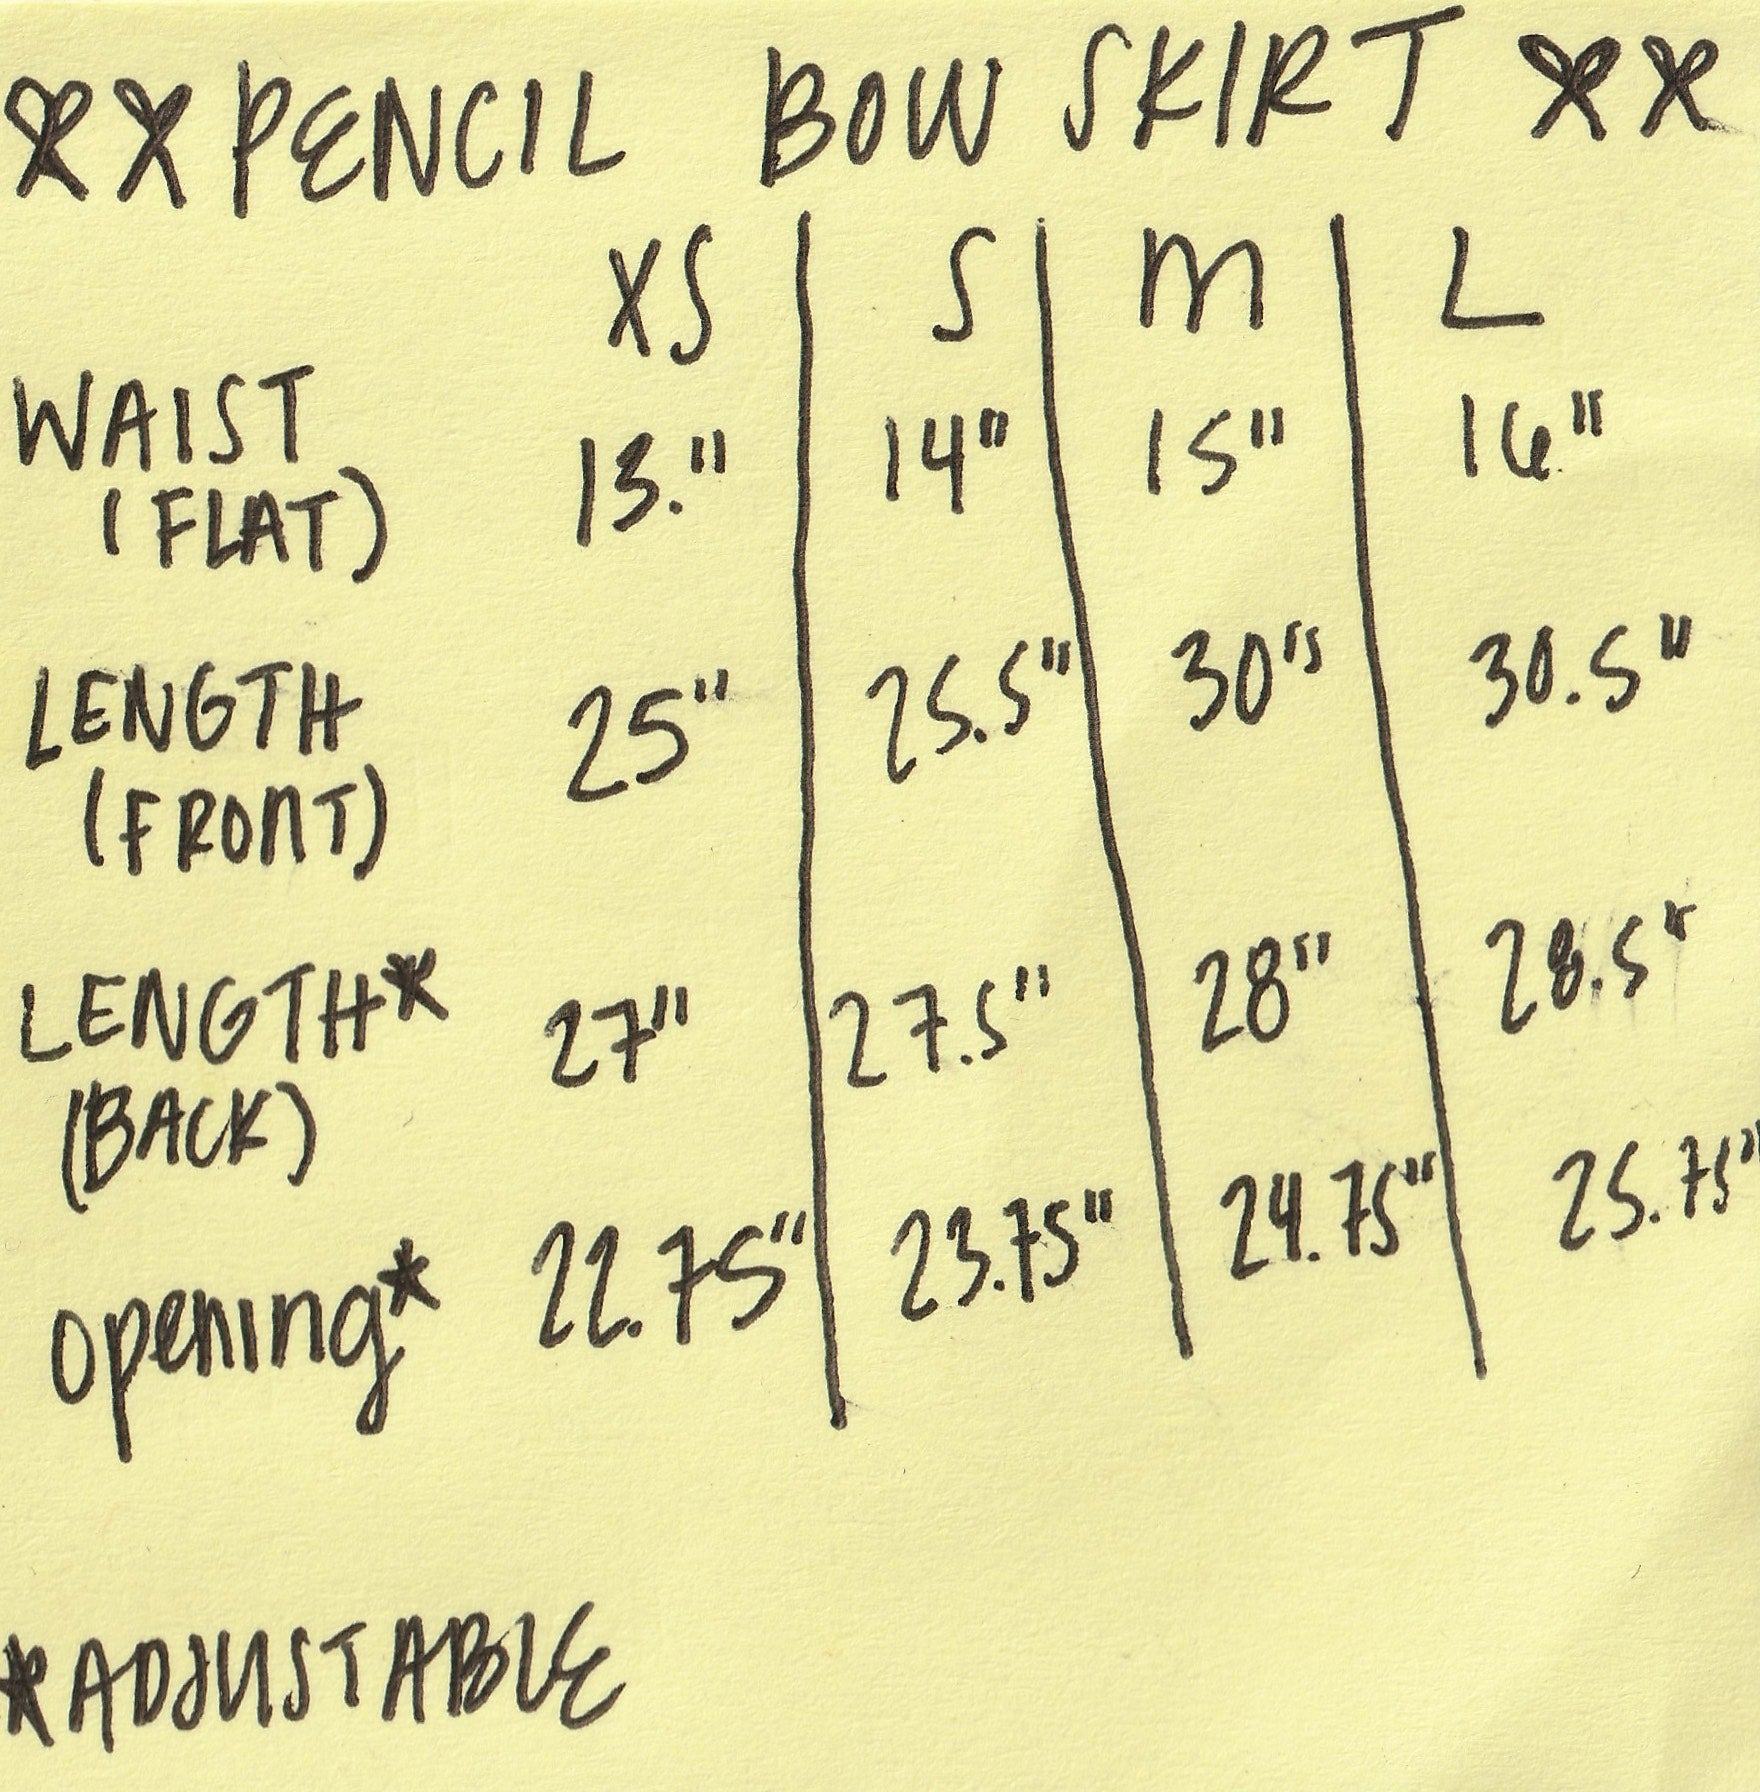 XX PENCIL BOW SKIRT XX
XS S M L
WAIST 13." 14" 15" 16"
(FLAT)
LENGTH 25" 25.5" 30" 30.5"
(FRONT)
LENGTH* 27" 27.5" 28" 28.5"
(BACK)
opening* 22.75" 23.75" 24.75" 25.75"
*ADJUSTABLE